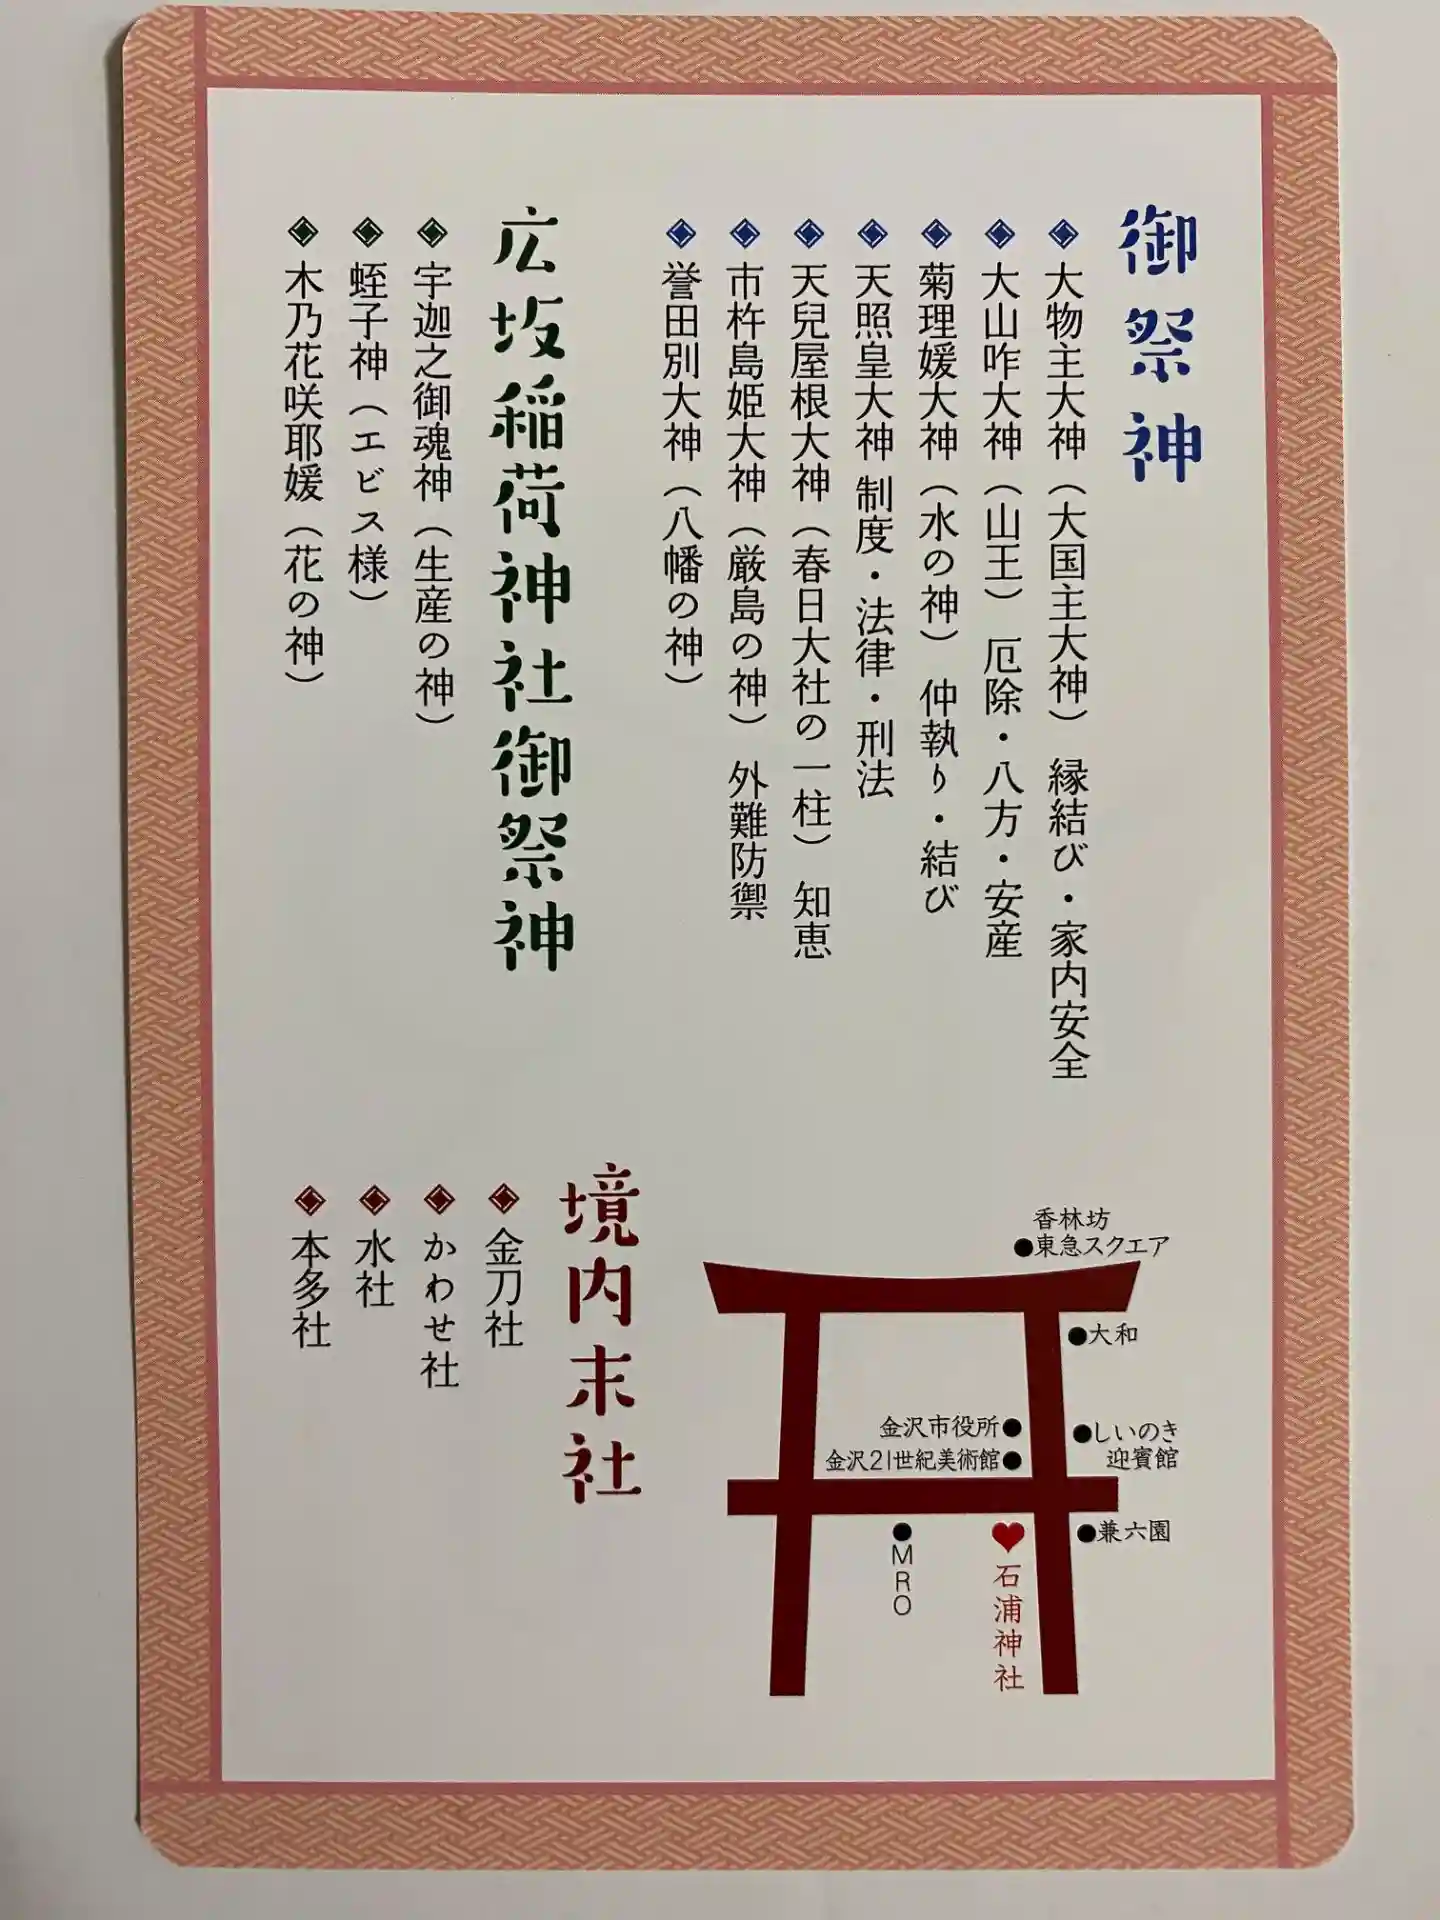 御祭神
大物主大神（大国主大神）　縁結び・家内安全
大山咋大神（山王）　厄除・八方・安産
菊理媛大神（水の神）　仲執り・結び
天照皇大神　制度・法律・刑法
天兒屋根大神（春日大社の一柱）　知恵
市杵島姫大神（厳島の神）　外難防禦
誉田別大神（八幡の神）
広坂稲荷神社御祭神
宇迦之御魂神（生産の神）
蛭子神（エビス様）
木乃花咲耶媛（花の神）
香林坊
東急スクエア
大和
しいのき
迎賓館
兼六園
金沢市役所
金沢21世紀美術館
石浦神社
MRO
境内末社
金刀社
かわせ社
水社
本多社